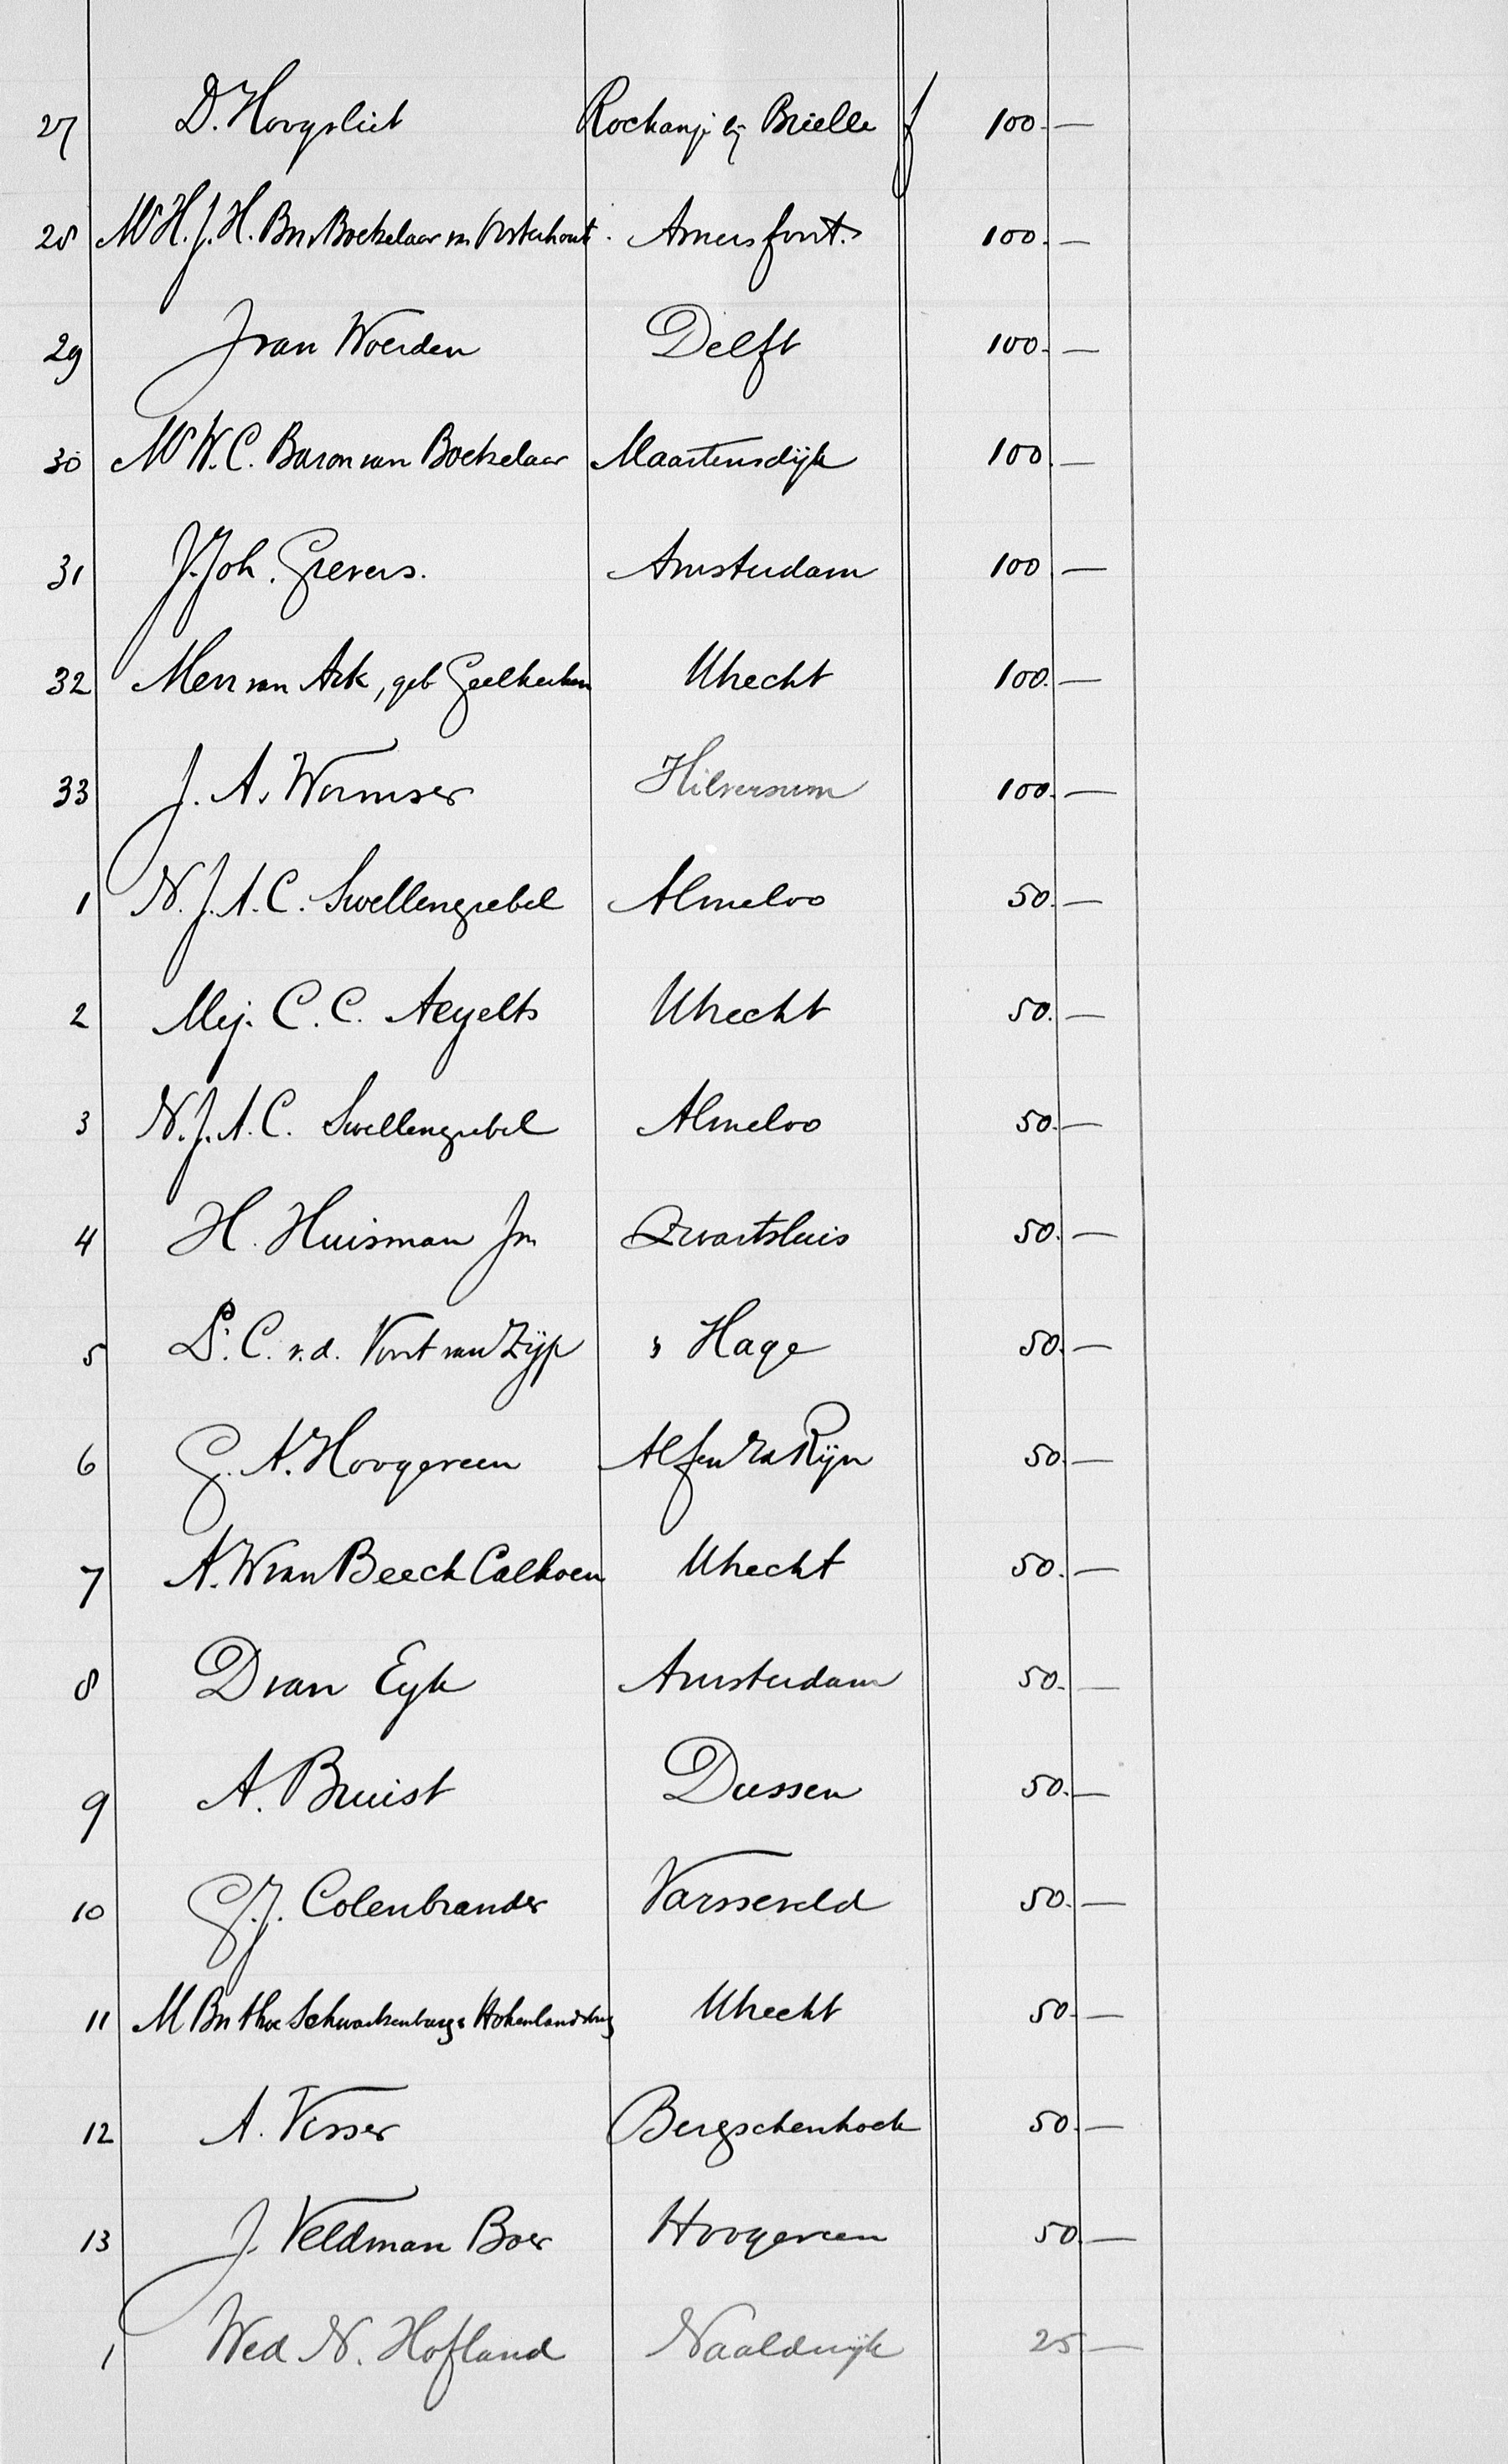 27 D. Hoogvliet Rockanje bij Brielle f 100. —
28 Mr H. J. H. Bn v Boetzelaar van Oosterhout. Amersfoort. 100. —
29 J van Woerden Delft 100. —
30 Mr W. C. Baron van Boetzelaar Maartensdijk 100. —
31 J. Joh. Grevers. Amsterdam 100 —
32 Mevr van Ark, geb Geelkerken Utrecht 100. —
33 J. A. Wormser Hilversum 100. —
1 N. J. A. C. Swellengrebel Almeloo 50. —
2 Mej. C. C. Aeyelts Utrecht 50. —
3 N. J. A. C. Swellengrebel Almeloo 50. —
4 H. Huisman Jr Zwartsluis 50. —
5 Ds. C. v. d. Vorst van Zijp s Hage 50. —
6 G. A. Hoogeveen Alfen Rijn 50. —
7 A. W van Beeck Calkoen Utrecht 50. —
8 D van Eyk Amsterdam 50. —
9 A. Bruist Dussen 50. —
10 G. J. Colenbrander Varsseveld 50. —
11 M Bn thoe Schwartzenburg & Hohenlandsberg Utrecht 50. —
12 A. Visser Bergschenhoek 50. —
13 J. Veldman Boer Hoogeveen 50 —
1 Wed N. Hofland Naaldwijk 25 —